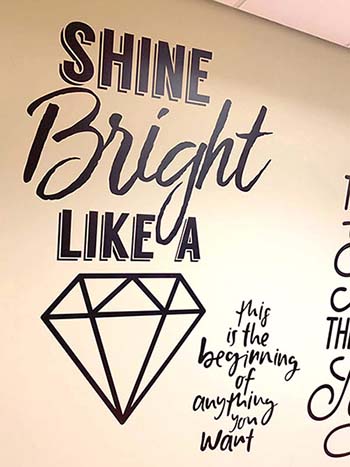 SHINE
Bright
LIKE A
this
is the
beginning
of
anything
you
want